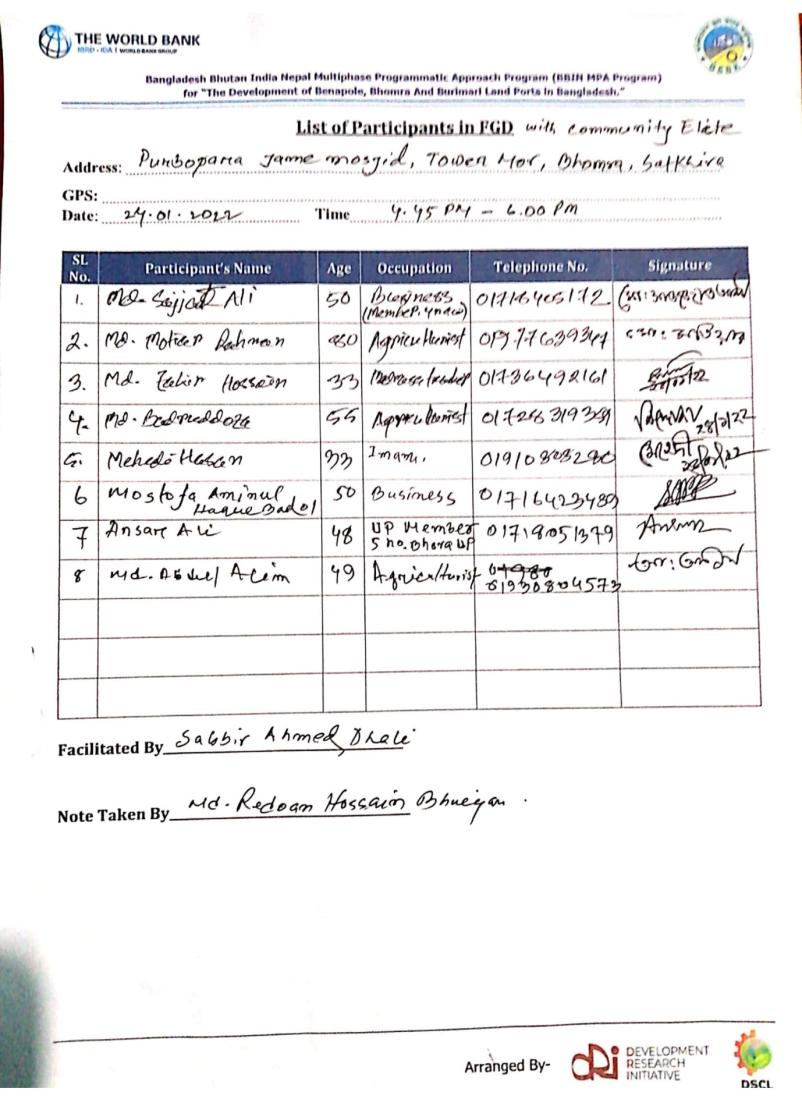 THE WORLD BANK
IBRD • IDA | WORLD BANK GROUP
Bangladesh Bhutan India Nepal Multiphase Programmatic Approach Program (BBIN MPA Program)
for "The Development of Benapole, Bhomra And Burimari Land Ports in Bangladesh."
List of Participants in FGD with community Elite
Address: Purbopara Jame mosjid, Tower Mor, Bhomra, Satkhira
GPS:
Date: 24.01.2022 Time 4.45 PM - 6.00 PM
SL No. Participant's Name Age Occupation Telephone No. Signature
1. Md. Sajjat Ali 50 Business
2. Md. Motier Rahman Agriculturist
3. Md. Zakir Hossain 33 01736492161
4. Md. Badruddoza 55 Agriculturist 28/2/22
5. Mehedi Hasan 33 Imam.
6 Mostofa Aminul Haque Badol 50 Business 01716423489
7 Ansar Ali 48 UP Member 5 no. UP 01718051379
8 Md. Abdul Alim 49 Agriculturist 01930804573
Facilitated By Sabbir Ahmed Dhali
Note Taken By Md. Redoan Hossain Bhueyan.
Arranged By- DRI DEVELOPMENT
RESEARCH
INITIATIVE
DSCL